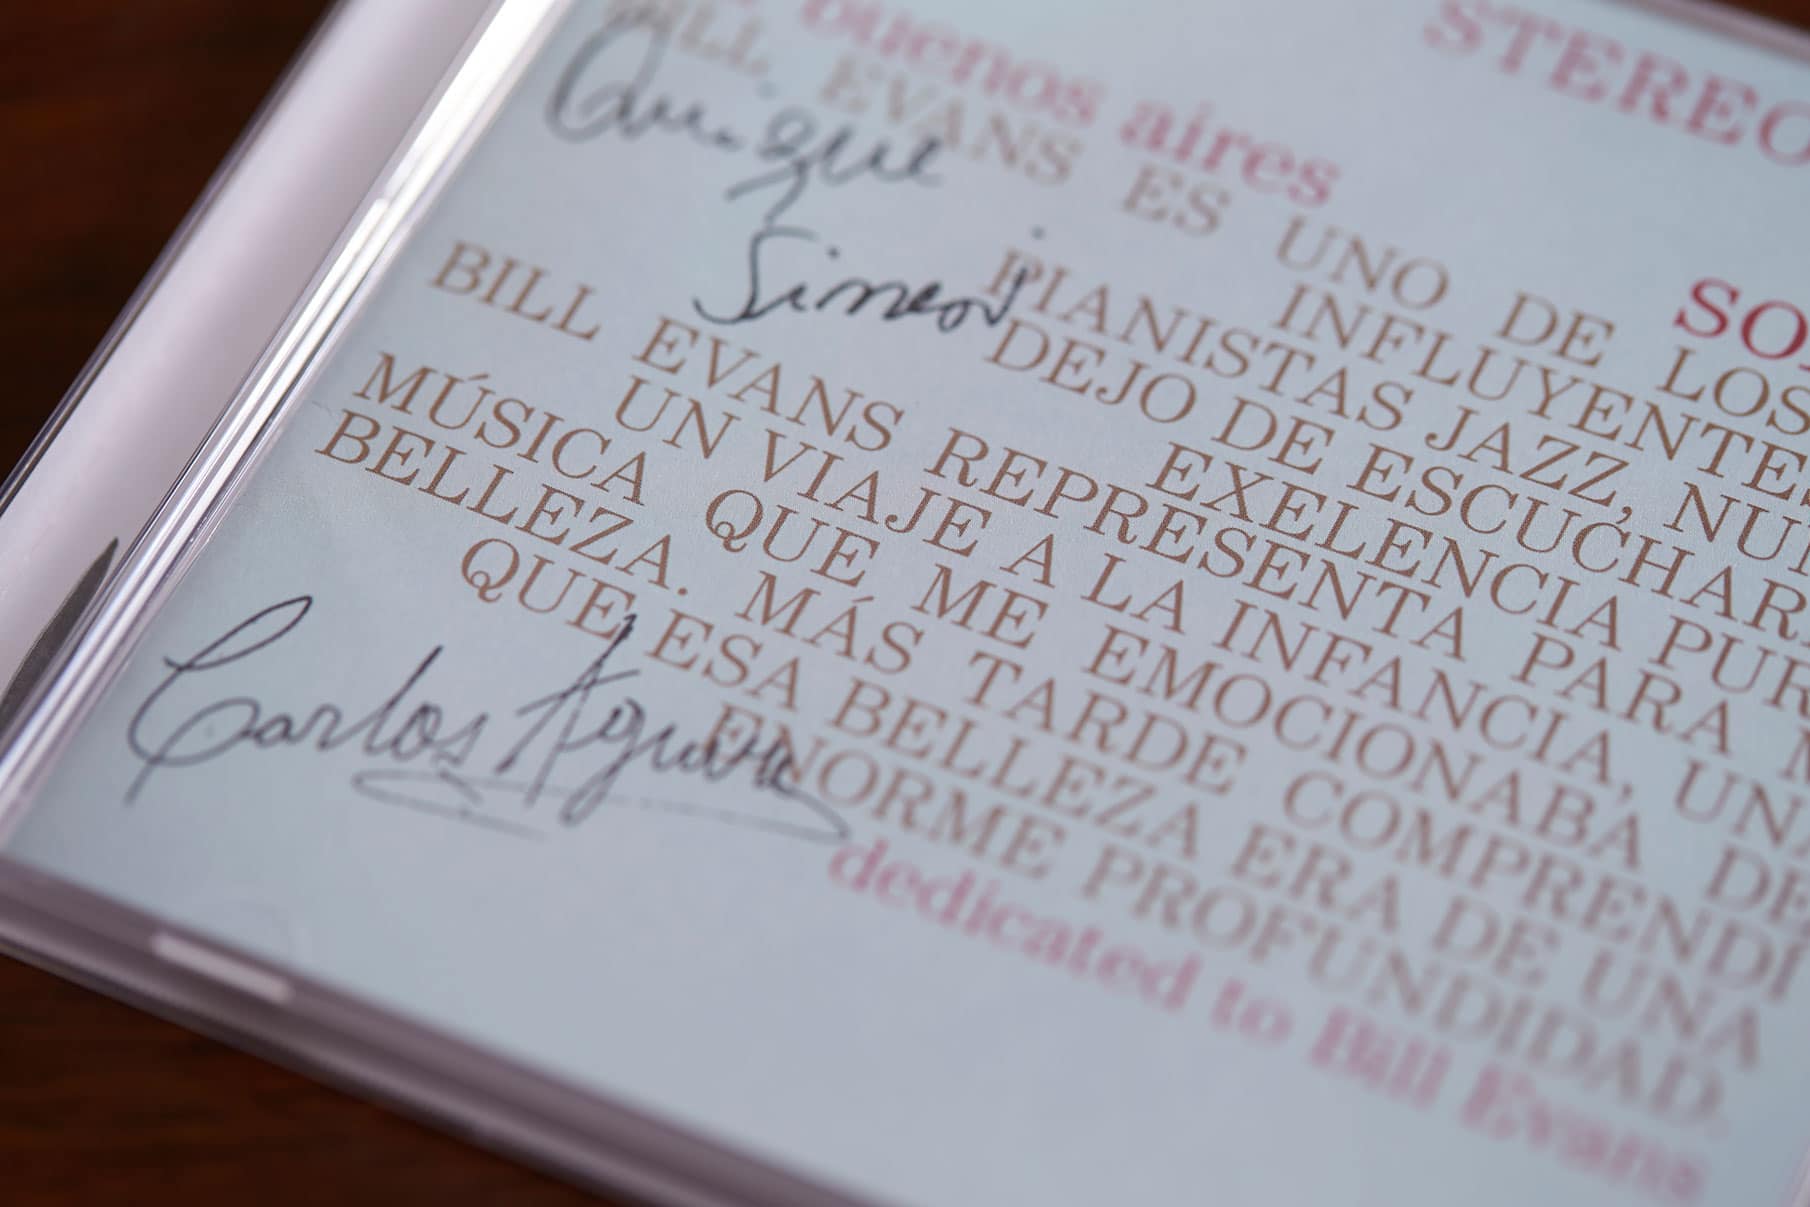 buenos aires
STEREO
BILL EVANS ES UNO DE LOS
INFLUYENTES
PIANISTAS JAZZ,
DEJO DE ESCUCHAR
EXELENCIA
SO
BILL EVANS REPRESENTA PARA
UN VIAJE A LA INFANCIA,
MÚSICA QUE ME EMOCIONABA DE
BELLEZA. MÁS TARDE COMPRENDÍ
QUE ESA BELLEZA ERA DE UNA
ENORME PROFUNDIDAD.
dedicated to Bill Evans
Enrique
Simeoni
Carlos Aguirre